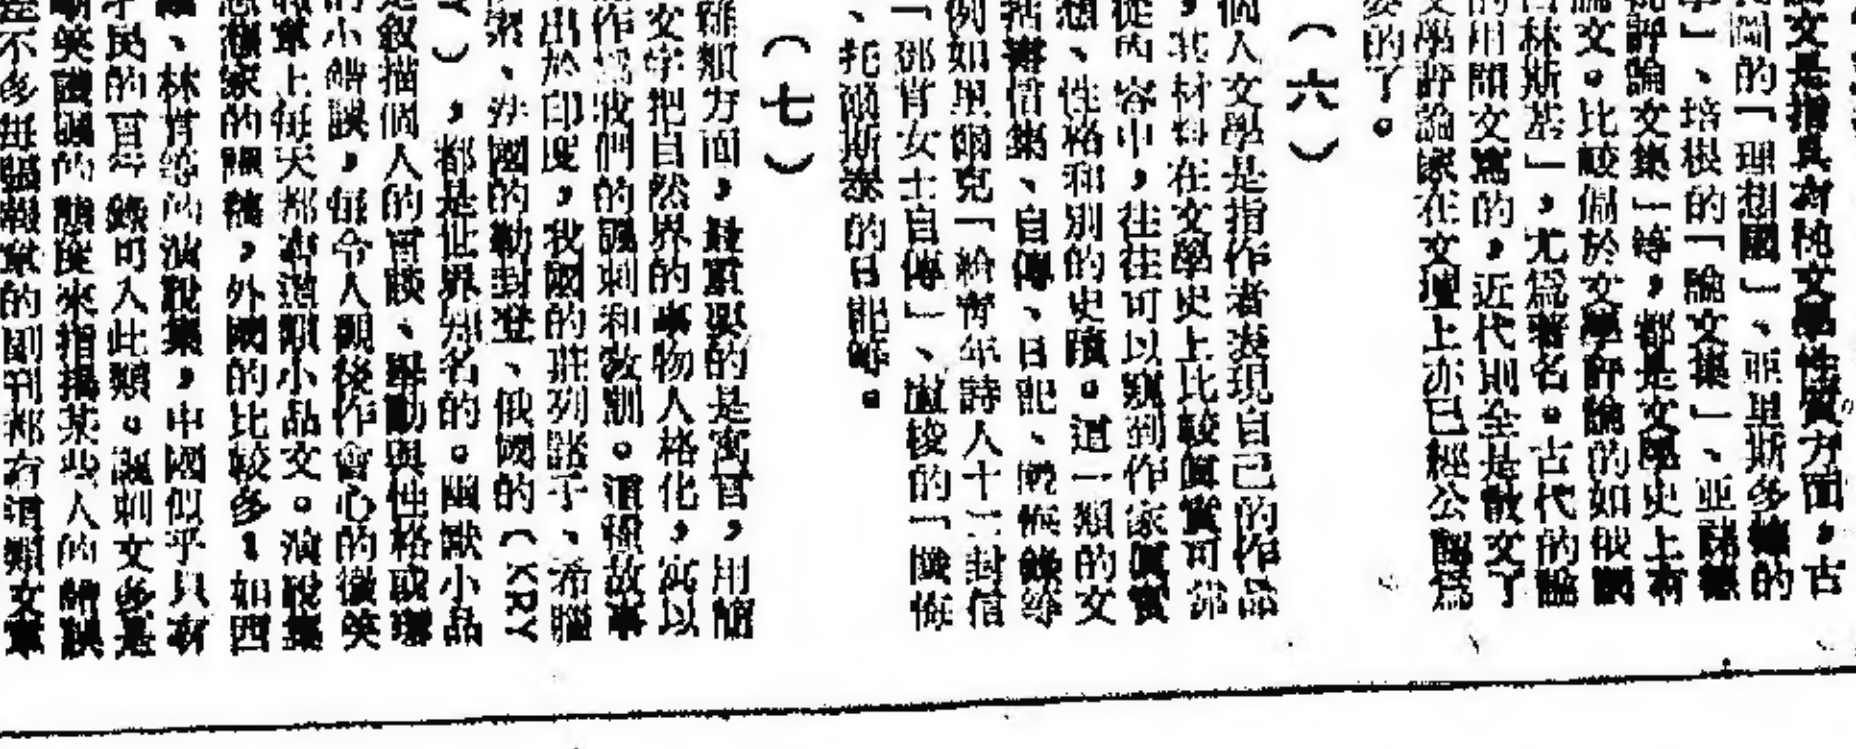 論文是指具有純文學性質方面，古
圖的「理想國」、亞里斯多德的
學」、培根的「論文集」、亞諾德
批評論文集」等，都是文學史上有
論文。比較偏於文學評論的如俄國
林斯基」，尤為著名。古代的論
的用問文寫的，近代則全是散文了
文學評論家在文壇上亦已經公認為
要的了。
（六）
個人文學是指作者表現自己的作品
，其材料在文學史上比較眞實可靠
從內容中，往往可以窺到作家眞實
想、性格和別的史蹟。這一類的文
括書信集、自傳、日記、懺悔錄等
例如里爾克「給青年詩人十二封信
「鄧肯女士自傳」、盧梭的「懺悔
、托爾斯泰的日記等。
（七）
雜類方面，最重要的是寓言，用簡
文字把自然界的事物人格化，寓以
作爲我們的諷刺和教訓。這種故事
出於印度，我國的莊列諸子、希臘
索、法國的勒封登、俄國的（KRY
），都是世界知名的。幽默小品
是叙描個人的言談、舉動與性格或環
的小錯誤，每令人觀後作會心的微笑
章上每天都有這類小品文。演說集
想家的講稿，外國的比較多，如西
、林肯等的演說集，中國似乎只有
民的言錄可入此類。諷刺文多是
嘲笑譏諷的態度來指摘某些人的錯誤
差不多每張報章的副刊都有這類文章